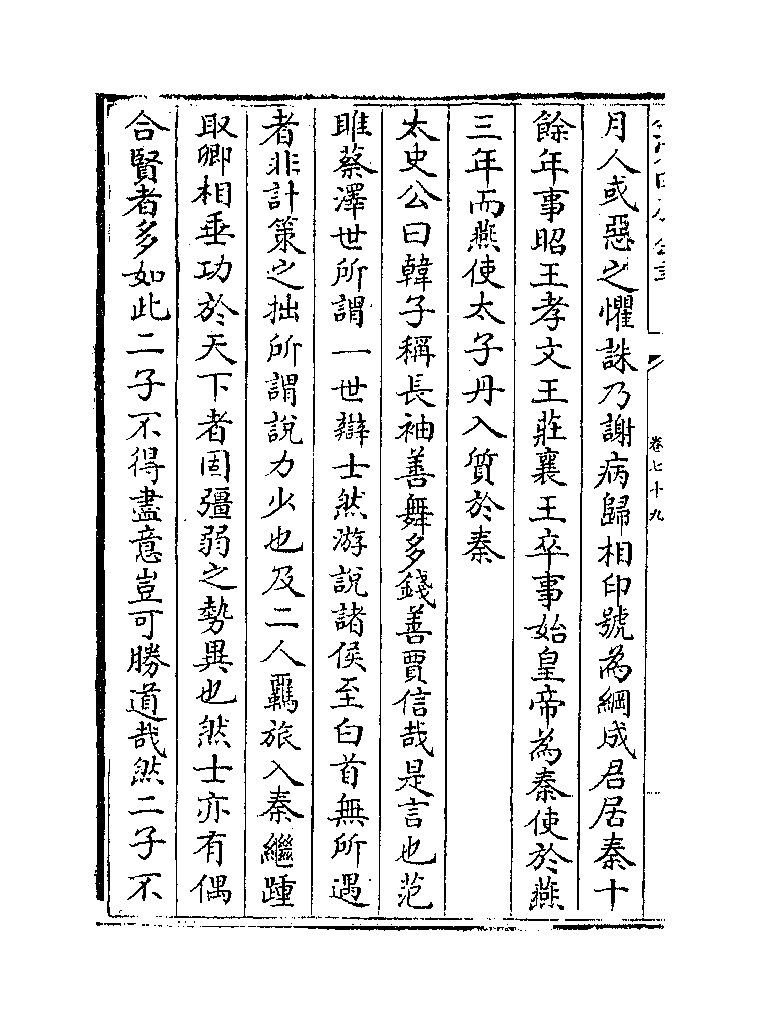 月人或惡之懼誅乃謝病歸相印號為綱成君居秦十
餘年事昭王孝文王莊襄王卒事始皇帝為秦使於燕
三年而燕使太子丹入質於秦
太史公曰韓子稱長袖善舞多錢善賈信哉是言也范
雎蔡澤世所謂一世辯士然游說諸侯至白首無所遇
者非計策之拙所謂說力少也及二人羈旅入秦繼踵
取卿相垂功於天下者固彊弱之勢異也然士亦有偶
合賢者多如此二子不得盡意豈可勝道哉然二子不
卷七十九